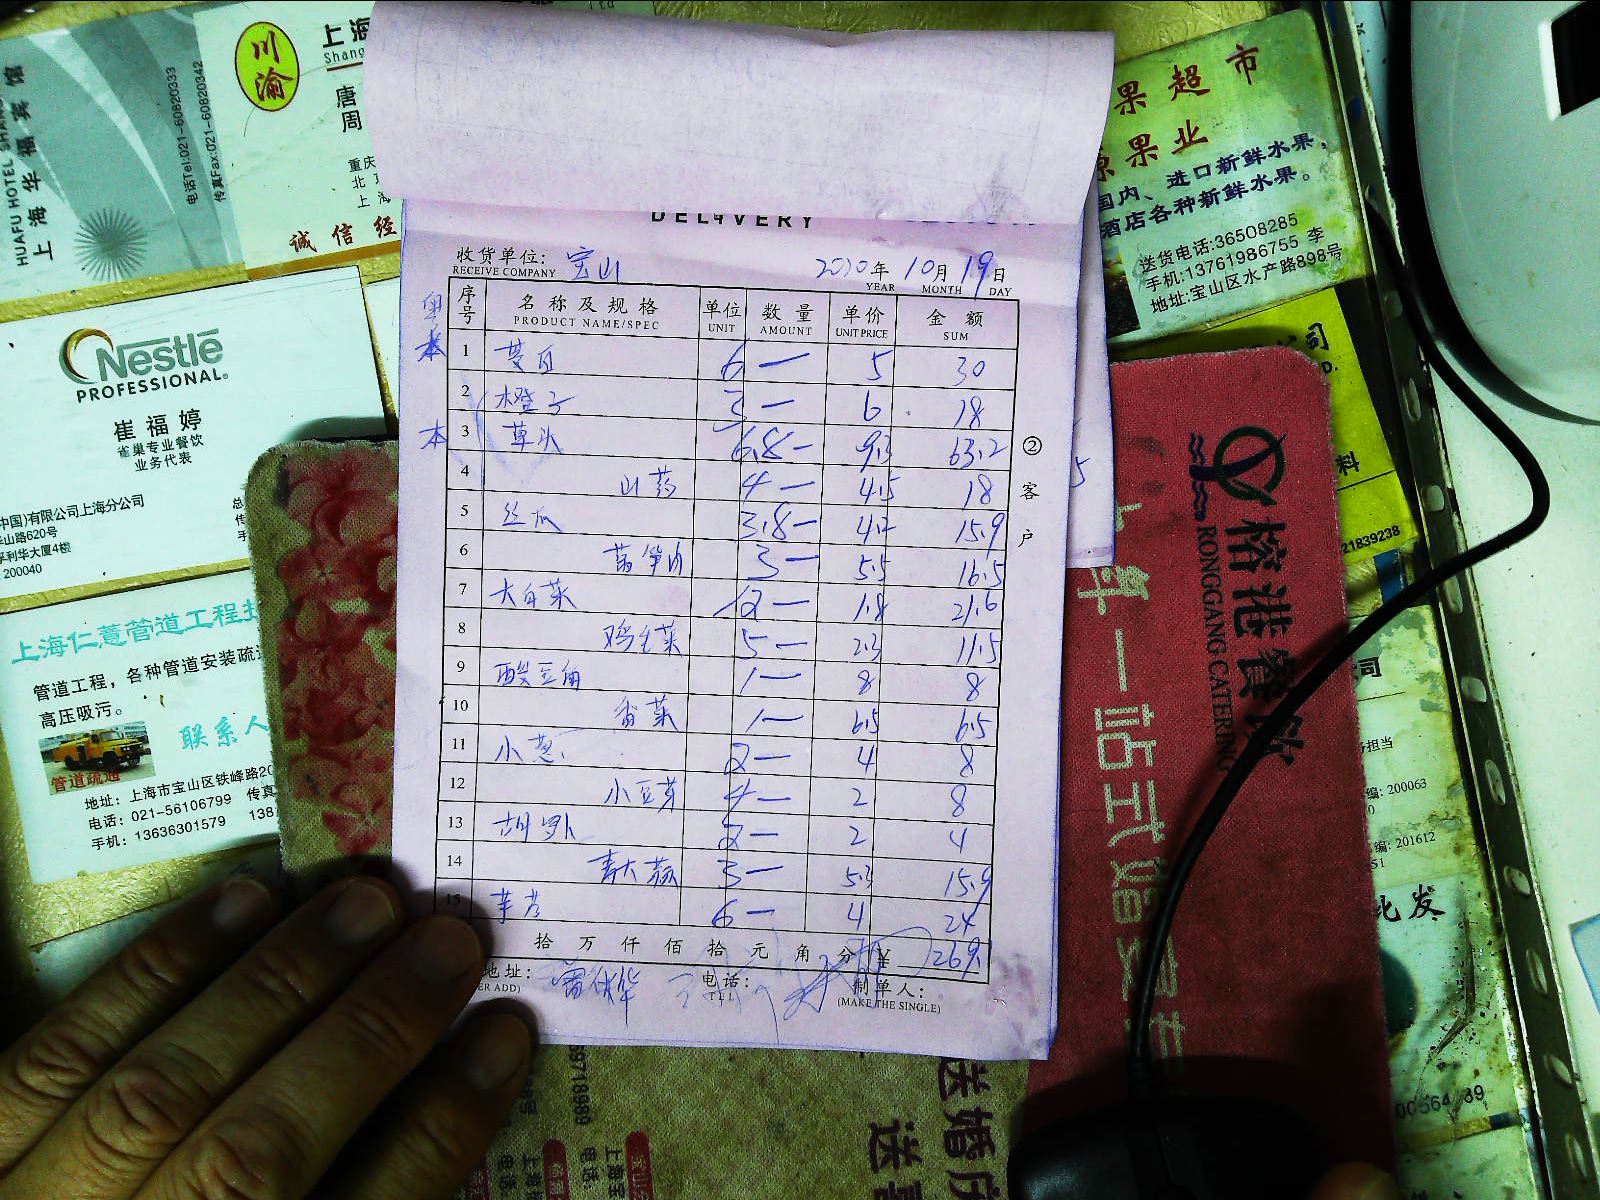 HUAFU HOTEL SHANG
上海华福宾馆
电话Tel:021-60820333
传真Fax:021-60820342
川渝
上海
Shang
唐
周
重庆
上海
诚信经
Nestlé
PROFESSIONAL®
崔福婷
雀巢专业餐饮
业务代表
中国)有限公司上海分公司
华山路620号
孚利华大厦4楼
200040
上海仁薏管道工程
管道工程，各种管道安装疏
高压吸污。
联系人
管道疏通
地址：上海市宝山区铁峰路20
电话：021-56106799 传真
手机：13636301579 138
DELIVERY
收货单位： 宝山
RECEIVE COMPANY
2020年 10月 19日
YEAR MONTH DAY
序号 名称及规格 单位 数量 单价 金额
PRODUCT NAME/SPEC UNIT AMOUNT UNIT PRICE SUM
1 茭白 6— 5 30
2 橙子 3— 6 18
本 3 草头 6.8— 9.3 63.2
4 山药 4— 4.5 18
5 丝瓜 3.8— 4.2 15.9
6 3— 5.5 16.5
7 大白菜 12— 1.8 21.6
8 鸡毛菜 5— 2.3 11.5
9 酸豆角 1— 8 8
10 香菜 1— 6.5 6.5
11 小葱 2— 4 8
12 小豆芽 4— 2 8
13 胡萝卜 2— 2 4
14 青大蒜 3— 5.3 15.9
15 芋艿 6— 4 24
拾万仟佰拾元角分 ¥ 269.1
地址： 电话： 制单人：
ER ADD) TEL (MAKE THE SINGLE)
②客户
果超市
果业
国内、进口新鲜水果，
酒店各种新鲜水果。
送货电话:36508285
手机:13761986755 李
地址:宝山区水产路898号
公司
料
21839238
榕港餐饮
RONGGANG CATERING
一站式婚宴
司
务担当
编: 200063
编: 201612
批发